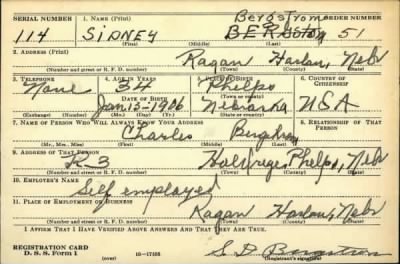 SERIAL NUMBER 1. NAME (Print) Bergstrom ORDER NUMBER
114 SiDNEY 51
(First) (Middle) (Last)
2. ADDRESS (Print)
Ragan Harlan, Nebr
(Number and street or R. F. D. number) (Town) (County) (State)
3. TELEPHONE 4. AGE IN YEARS 5. PLACE OF BIRTH 6. COUNTRY OF CITIZENSHIP
None 34 Phelps
DATE OF BIRTH (Town or county)
Jan 13-1906 Nebraska USA
(Exchange) (Number) (Mo.) (Day) (Yr.) (State or country)
7. NAME OF PERSON WHO WILL ALWAYS KNOW YOUR ADDRESS 8. RELATIONSHIP OF THAT PERSON
Charles Bergstrom
(Mr., Mrs., Miss) (First) (Middle) (Last)
9. ADDRESS OF THAT PERSON
R-3 Holdrege, Phelps, Nebr
(Number and street or R. F. D. number) (Town) (County) (State)
10. EMPLOYER'S NAME
Self employed
11. PLACE OF EMPLOYMENT OR BUSINESS
Ragan Harlan, Nebr
(Number and street or R. F. D. number) (Town) (County) (State)
I AFFIRM THAT I HAVE VERIFIED ABOVE ANSWERS AND THAT THEY ARE TRUE.
REGISTRATION CARD
D. S. S. Form 1 16-17105 S. D Bergstrom
(Registrant's signature)